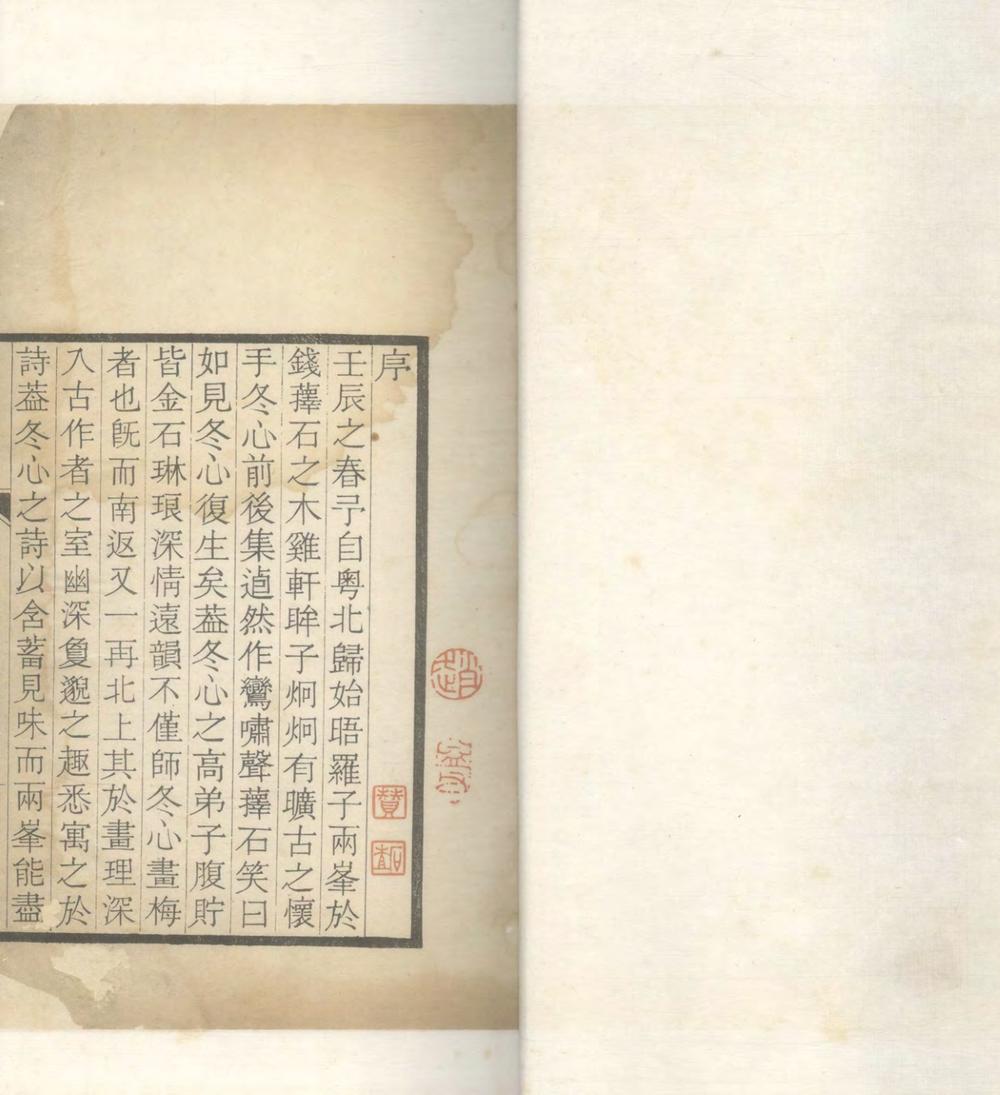 序
壬辰之春予自粤北歸始晤羅子兩峯於
錢蘀石之木雞軒眸子炯炯有曠古之懷
手冬心前後集逌然作鸞嘯聲蘀石笑曰
如見冬心復生矣葢冬心之高弟子腹貯
皆金石琳琅深情遠韻不僅師冬心畫梅
者也旣而南返又一再北上其於畫理深
入古作者之室幽深敻邈之趣悉寓之於
詩葢冬心之詩以含蓄見味而兩峯能盡